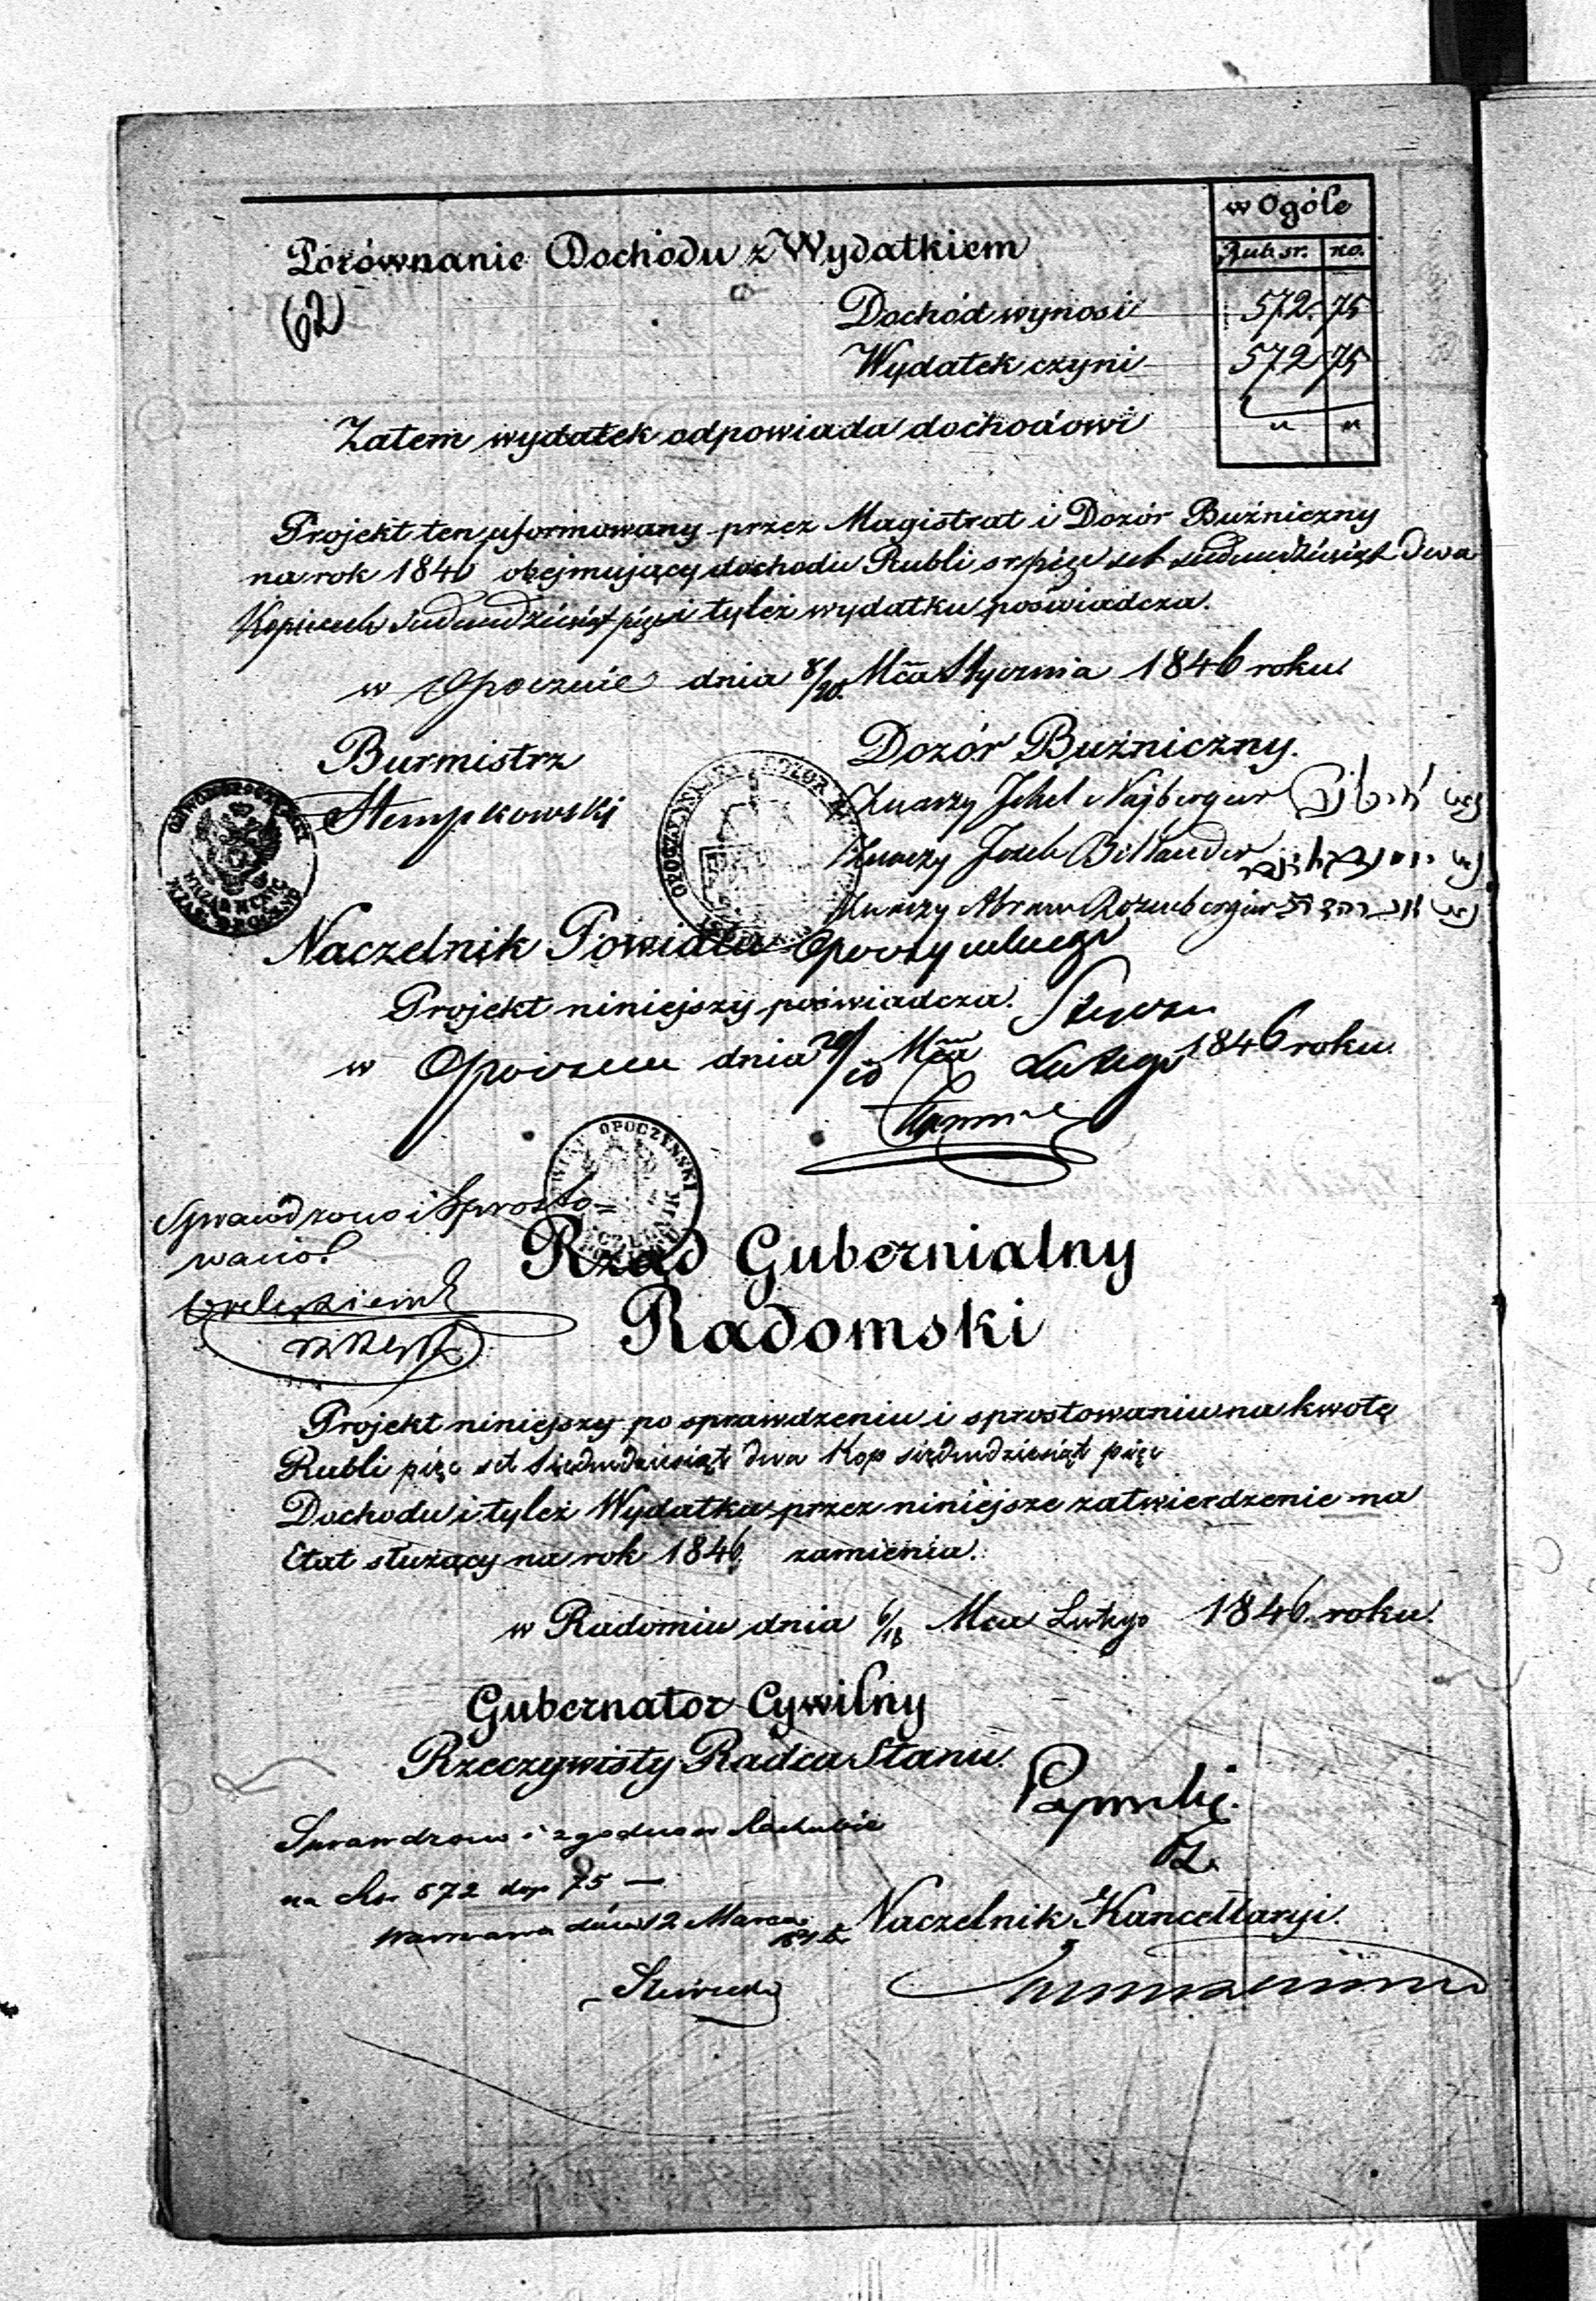 w Ogóle
Rub. sr. ko.
Porównanie Dochodu z Wydatkiem
62
Dochód wynosi 572. 75
Wydatek czyni 572 75
Zatem wydatek odpowiada dochodowi " "
Projekt ten uformowany przez Magistrat i Dozór Bużniczny
na rok 1846 obejmujący dochodu Rubli sr. pięc set siedmdziesiąt dwa
Kopieek siedmdziesiąt pięc i tyleż wydatku poświadcza.
w Opocznie dnia 8/20 Mca Stycznia 1846 roku.
Burmistrz
Dozór Bużniczny.
Stempkowski
Jekel Najberger
Josek Bitlander
Abram Rozenberger
Naczelnik Powiatu Opoczynskiego
Projekt niniejszy poświadcza.
w Opocznie dnia /10 Mca Lutego 1846 roku.
OPOCZYNSKI
Sprawdzono i Sprosto=
wano
Rząd Gubernialny
Radomski
Projekt niniejszy po sprawdzeniu i sprostowaniu na kwotę
Rubli pięc set siedmdziesiąt dwa Kop siedmdziesiąt pięc
Dochodu i tyleż Wydatku przez niniejsze zatwierdzenie na
Etat służący na rok 1846. zamienia.
w Radomiu dnia 6/18 Mca Lutego 1846. roku.
Gubernator Cywilny
Rzeczywisty Radca Stanu.
Sprawdzono i zgodno w Rachubie
na Rs. 572 kop 75 —
Warszawa dnia 12 Marca 1846
Naczelnik Kancellaryi.